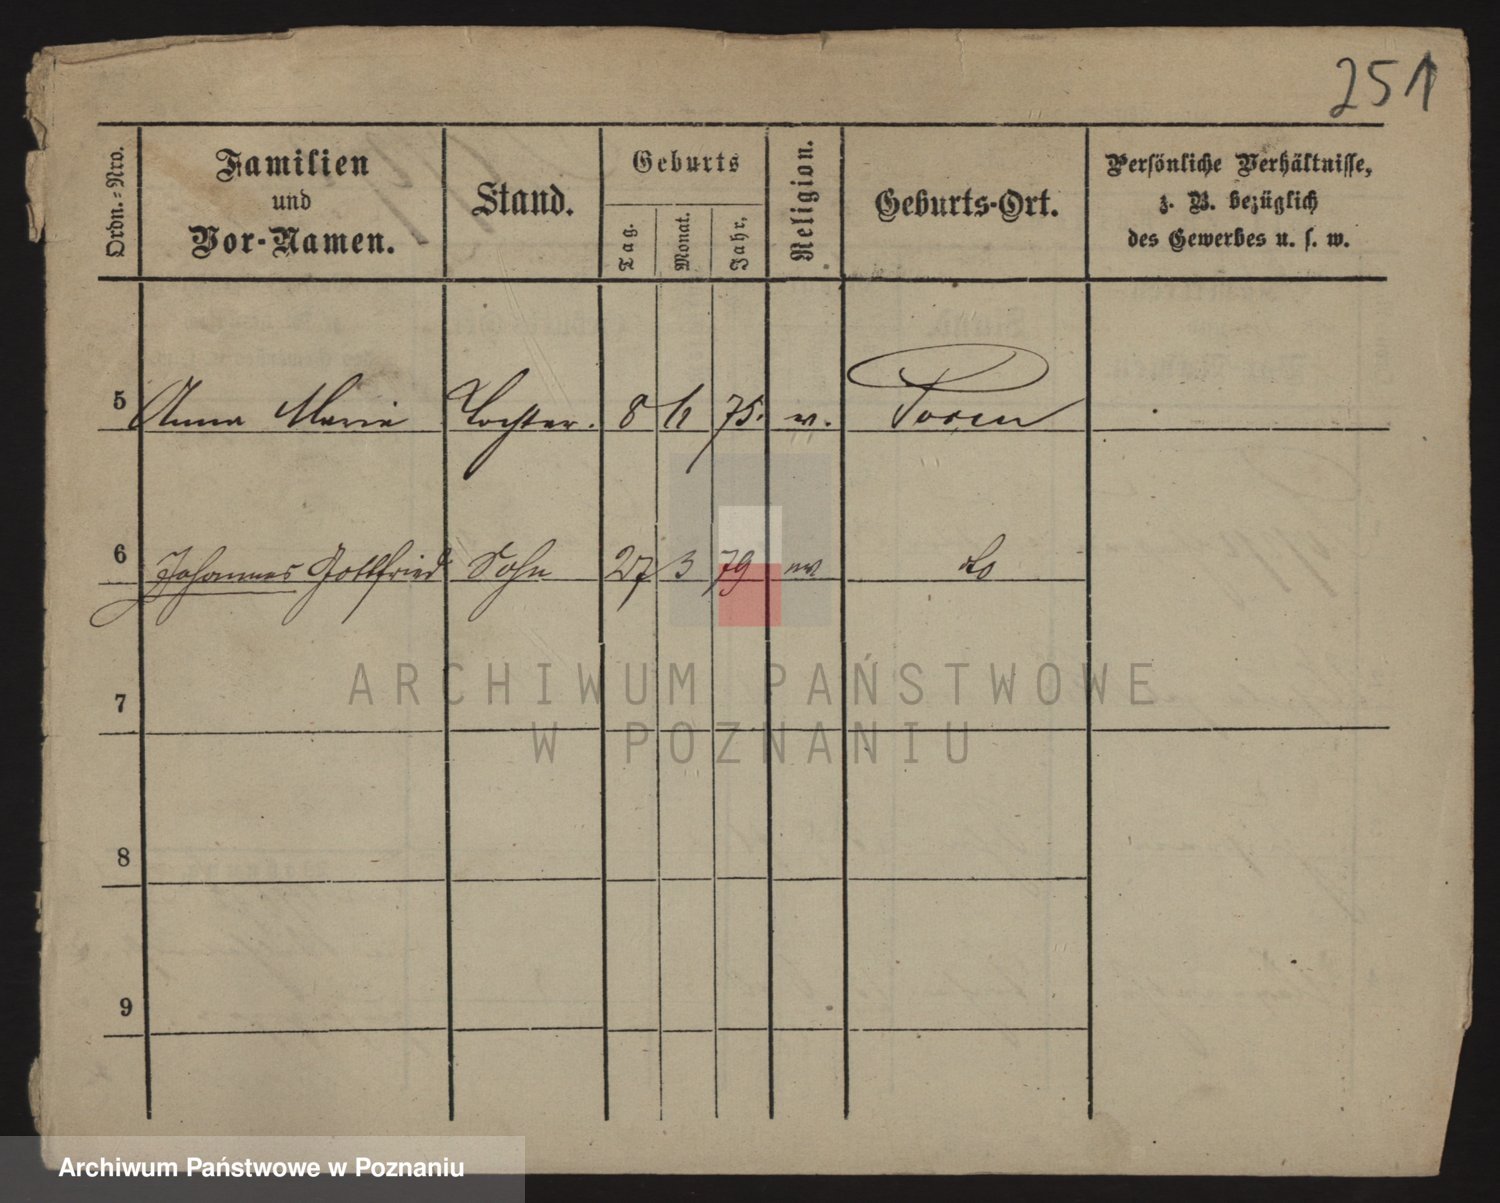 251
Ordn.-Nro.
Familien
und
Vor-Namen.
Stand.
Geburts
Tag.
Monat.
Jahr.
Religion.
Geburts-Ort.
Persönliche Verhältnisse,
z. B. bezüglich
des Gewerbes u. s. w.
5 Anna Marie Tochter. 8 75. Posen
6 Johannes Gottfried Sohn 27 3 79 do
7
8
9
ARCHIWUM PAŃSTWOWE
W POZNANIU
Archiwum Państwowe w Poznaniu